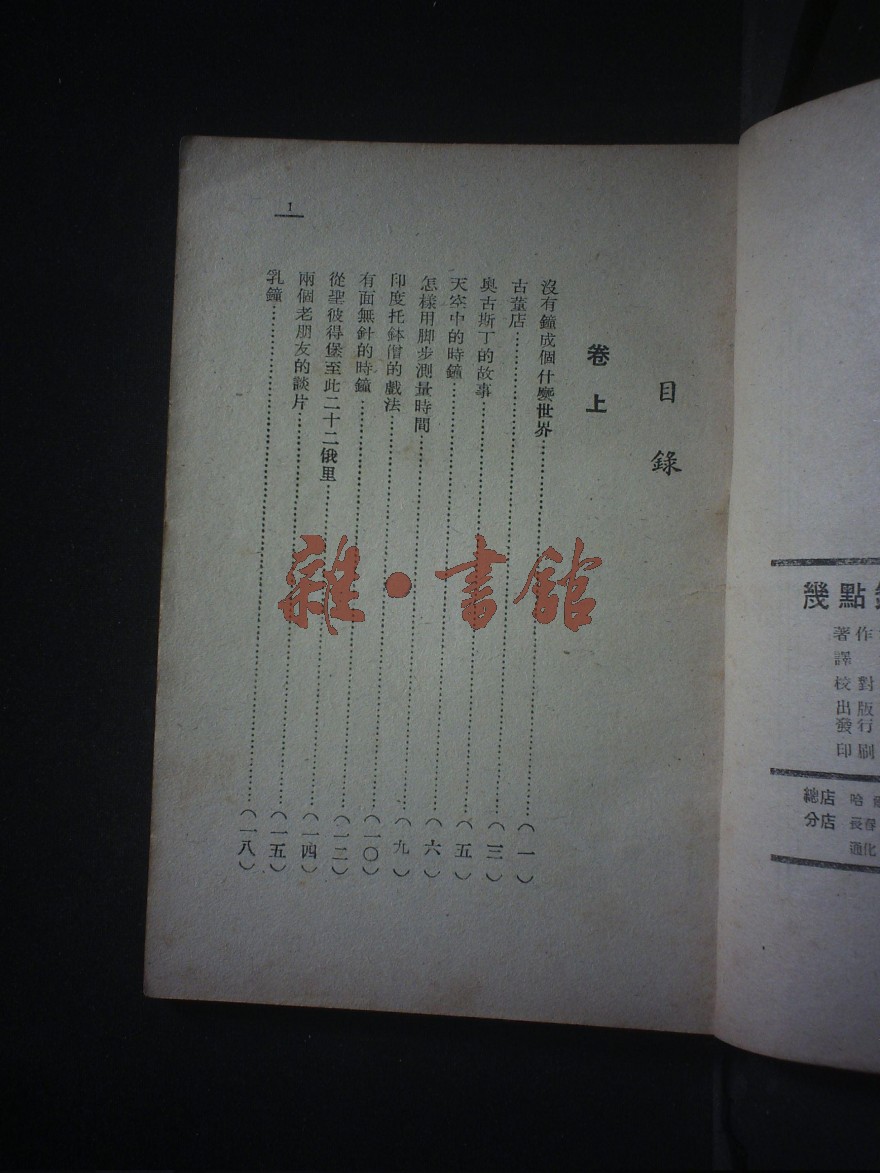 目錄
卷上
沒有鐘成個什麼世界…………(一)
古董店…………(三)
奧古斯丁的故事…………(五)
天空中的時鐘…………(六)
怎樣用脚步測量時間…………(九)
印度托鉢僧的戲法…………(一〇)
有面無針的時鐘…………(一二)
從聖彼得堡至此二十二俄里…………(一四)
兩個老朋友的談片…………(一五)
乳鐘…………(一八)
1
雜·書館
幾點
著作
譯
校對
出版
發行
印刷
總店 哈
分店 長春
通化